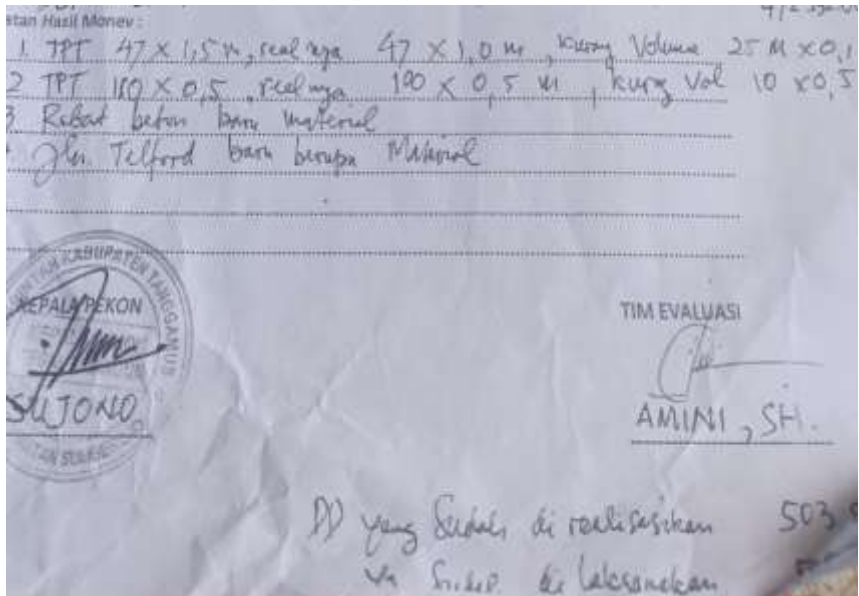 atan Hasil Monev :
1. TPT 47 x 1,5 m, real nya 47 x 1,0 m, Kurang Volume 25 M x 0,1
2 TPT 180 x 0,5, real nya 190 x 0,5 m, kurg Vol 10 x 0,5
3 Rabat beton baru material
Jln. Telford baru berupa Material
KABUPATEN TANGGAMUS
KEPALA PEKON
TIM EVALUASI
SUJONO
AMINI, SH.
DD yang Sudah di realisasikan 503
di laksanakan